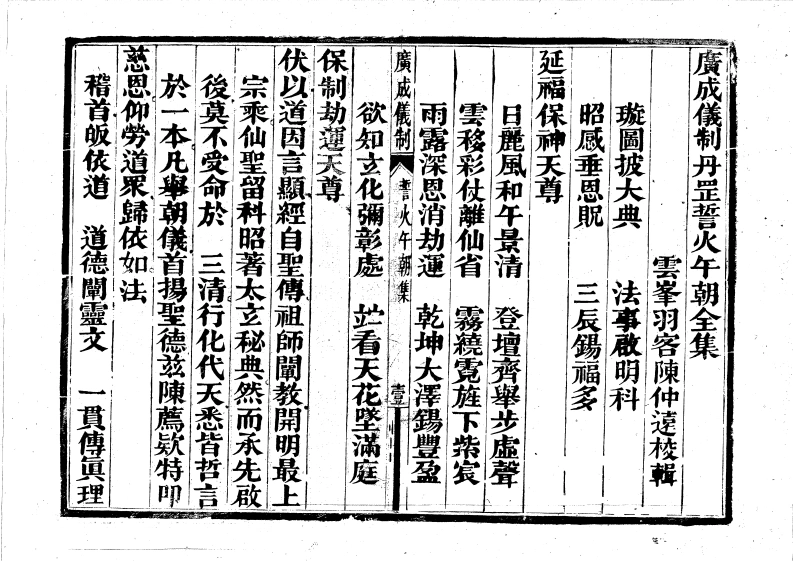 廣成儀制丹罡誓火午朝全集
雲峯羽客陳仲遠校輯
璇圖披大典　法事啟明科
昭感垂恩貺　三辰錫福多
延福保神天尊
日麗風和午景清　登壇齊舉步虛聲
雲移彩仗離仙省　霧繞霓旌下紫宸
雨露深恩消劫運　乾坤大澤錫豐盈
廣成儀制　誓火午朝集　壹
欲知玄化彌彰處　竝看天花墜滿庭
保制劫運天尊
伏以道因言顯經自聖傳祖師闡教開明最上
宗乘仙聖留科昭著太玄秘典然而承先啟
後莫不受命於　三清行化代天悉皆哲言
於一本凡舉朝儀首揚聖德茲陳薦欵特叩
慈恩仰勞道眾歸依如法
稽首皈依道　道德闡靈文　一貫傳眞理